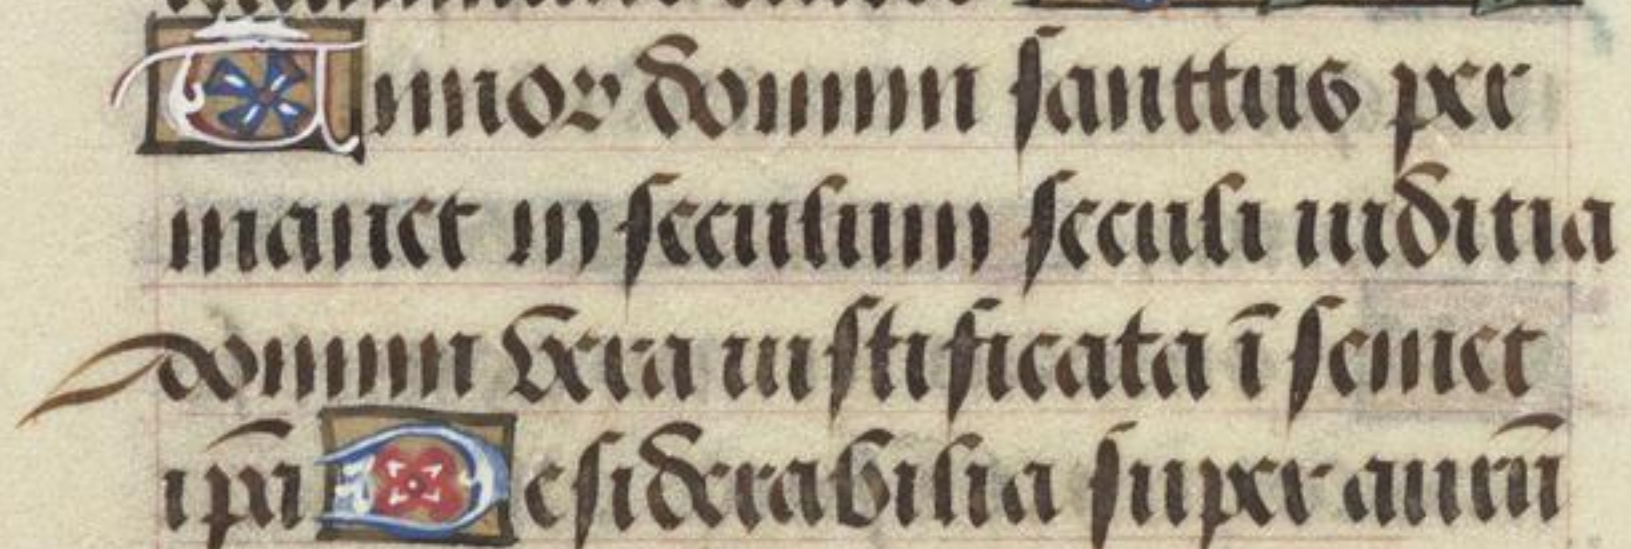 Timor domini sanctus per
manet in seculum seculi iuditia
domini vera iustificata ī semet
ipā Desiderabilia super aurū